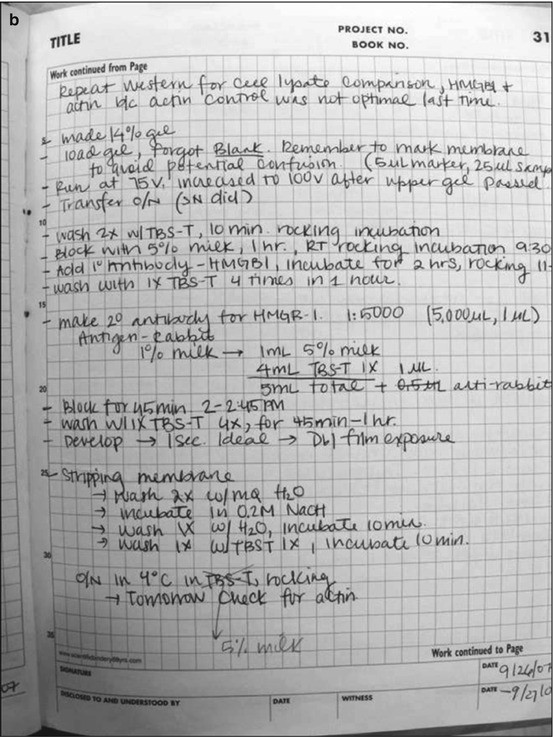 b
TITLE
PROJECT NO.
BOOK NO.
31
Work continued from Page
Repeat Western for cell lysate comparison, HMGB1 +
actin b/c actin control was not optimal last time.
5
- made 14% gel
- load gel, forgot Blank. Remember to mark membrane
to avoid potential confusion. (5uL marker, 25uL samp
- Run at 75V, increased to 100V after upper gel passed
- Transfer O/N (SN did)
10
- wash 2x w/TBS-T, 10 min. rocking incubation
- Block with 5% milk, 1 hr., RT rocking incubation 9:30
- Add 1° Antibody - HMGB1, incubate for 2 hrs, rocking 11-
- wash with 1X TBS-T 4 times in 1 hour.
15
- make 2° antibody for HMGB-1. 1:5000 (5,000uL, 1uL)
Antigen-Rabbit
1% milk → 1mL 5% milk
4mL TBS-T 1X 1uL
5mL total + 0.5uL anti-rabbit
20
- Block for 45min 2-2:45PM
- wash w/1X TBS-T 4x, for 45min-1hr.
- Develop → 1 Sec. Ideal → Dbl film exposure
25
- Stripping membrane
→ Wash 2x w/mQ H2O
→ incubate in 0.2M NaOH
→ wash 1X w/H2O, incubate 10min.
→ wash 1x w/TBST 1X, incubate 10min.
30
O/N in 4°C in TBS-T, rocking
→ Tomorrow check for actin
35
5% milk
Work continued to Page
SIGNATURE
DATE 9/26/07
DISCLOSED TO AND UNDERSTOOD BY
DATE
WITNESS
DATE -9/27/0
07